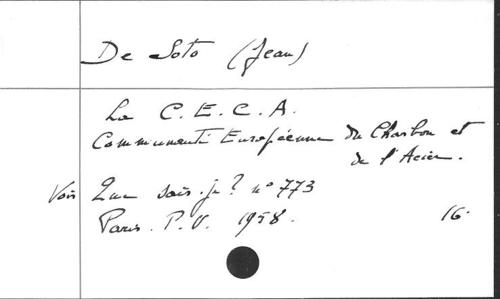 De Soto (Jean)
La C.E.C.A.
Communauté Européenne du Charbon et
de l'Acier.
Voir Que sais-je? n° 773
Paris. P.U. 1958. 16.